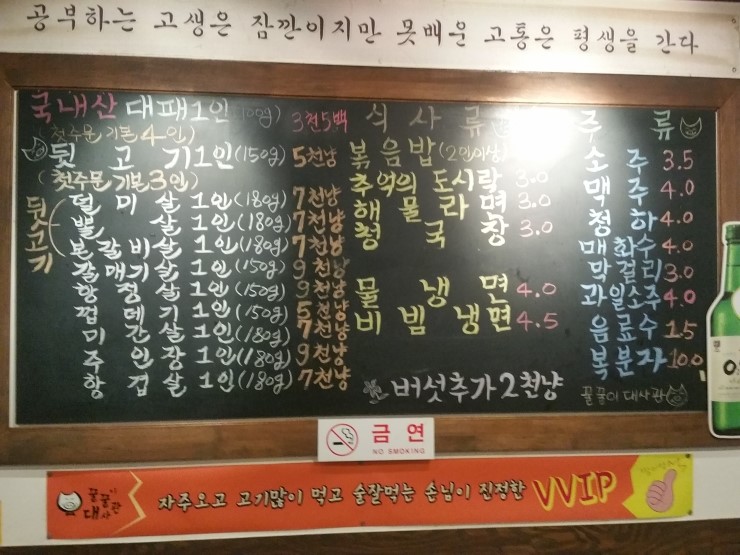 공부하는 고생은 잠깐이지만 못배운 고통은 평생을 간다
국내산 대패 1인 (100g) 3천5백
(첫주문 기본 4인)
뒷고기 1인 (150g) 5천냥
(첫주문 기본 3인)
뒷고기
덜미살 1인 (180g) 7천냥
뽈살 1인 (180g) 7천냥
본갈비살 1인 (180g) 7천냥
갈매기살 1인 (150g) 9천냥
항정살 1인 (150g) 9천냥
껍데기 1인 (150g) 5천냥
미간살 1인 (180g) 7천냥
주인장 1인 (180g) 9천냥
항겁살 1인 (180g) 7천냥
식사류
볶음밥 (2인이상)
추억의 도시락 3.0
해물라면 3.0
청국장 3.0
물냉면 4.0
비빔냉면 4.5
버섯추가 2천냥
주류
소주 3.5
맥주 4.0
청하 4.0
매화수 4.0
막걸리 3.0
과일소주 4.0
음료수 1.5
복분자 10.0
꿀꿀이 대사관
금연
NO SMOKING
꿀꿀이
대사관
자주오고 고기많이 먹고 술잘먹는 손님이 진정한 VVIP